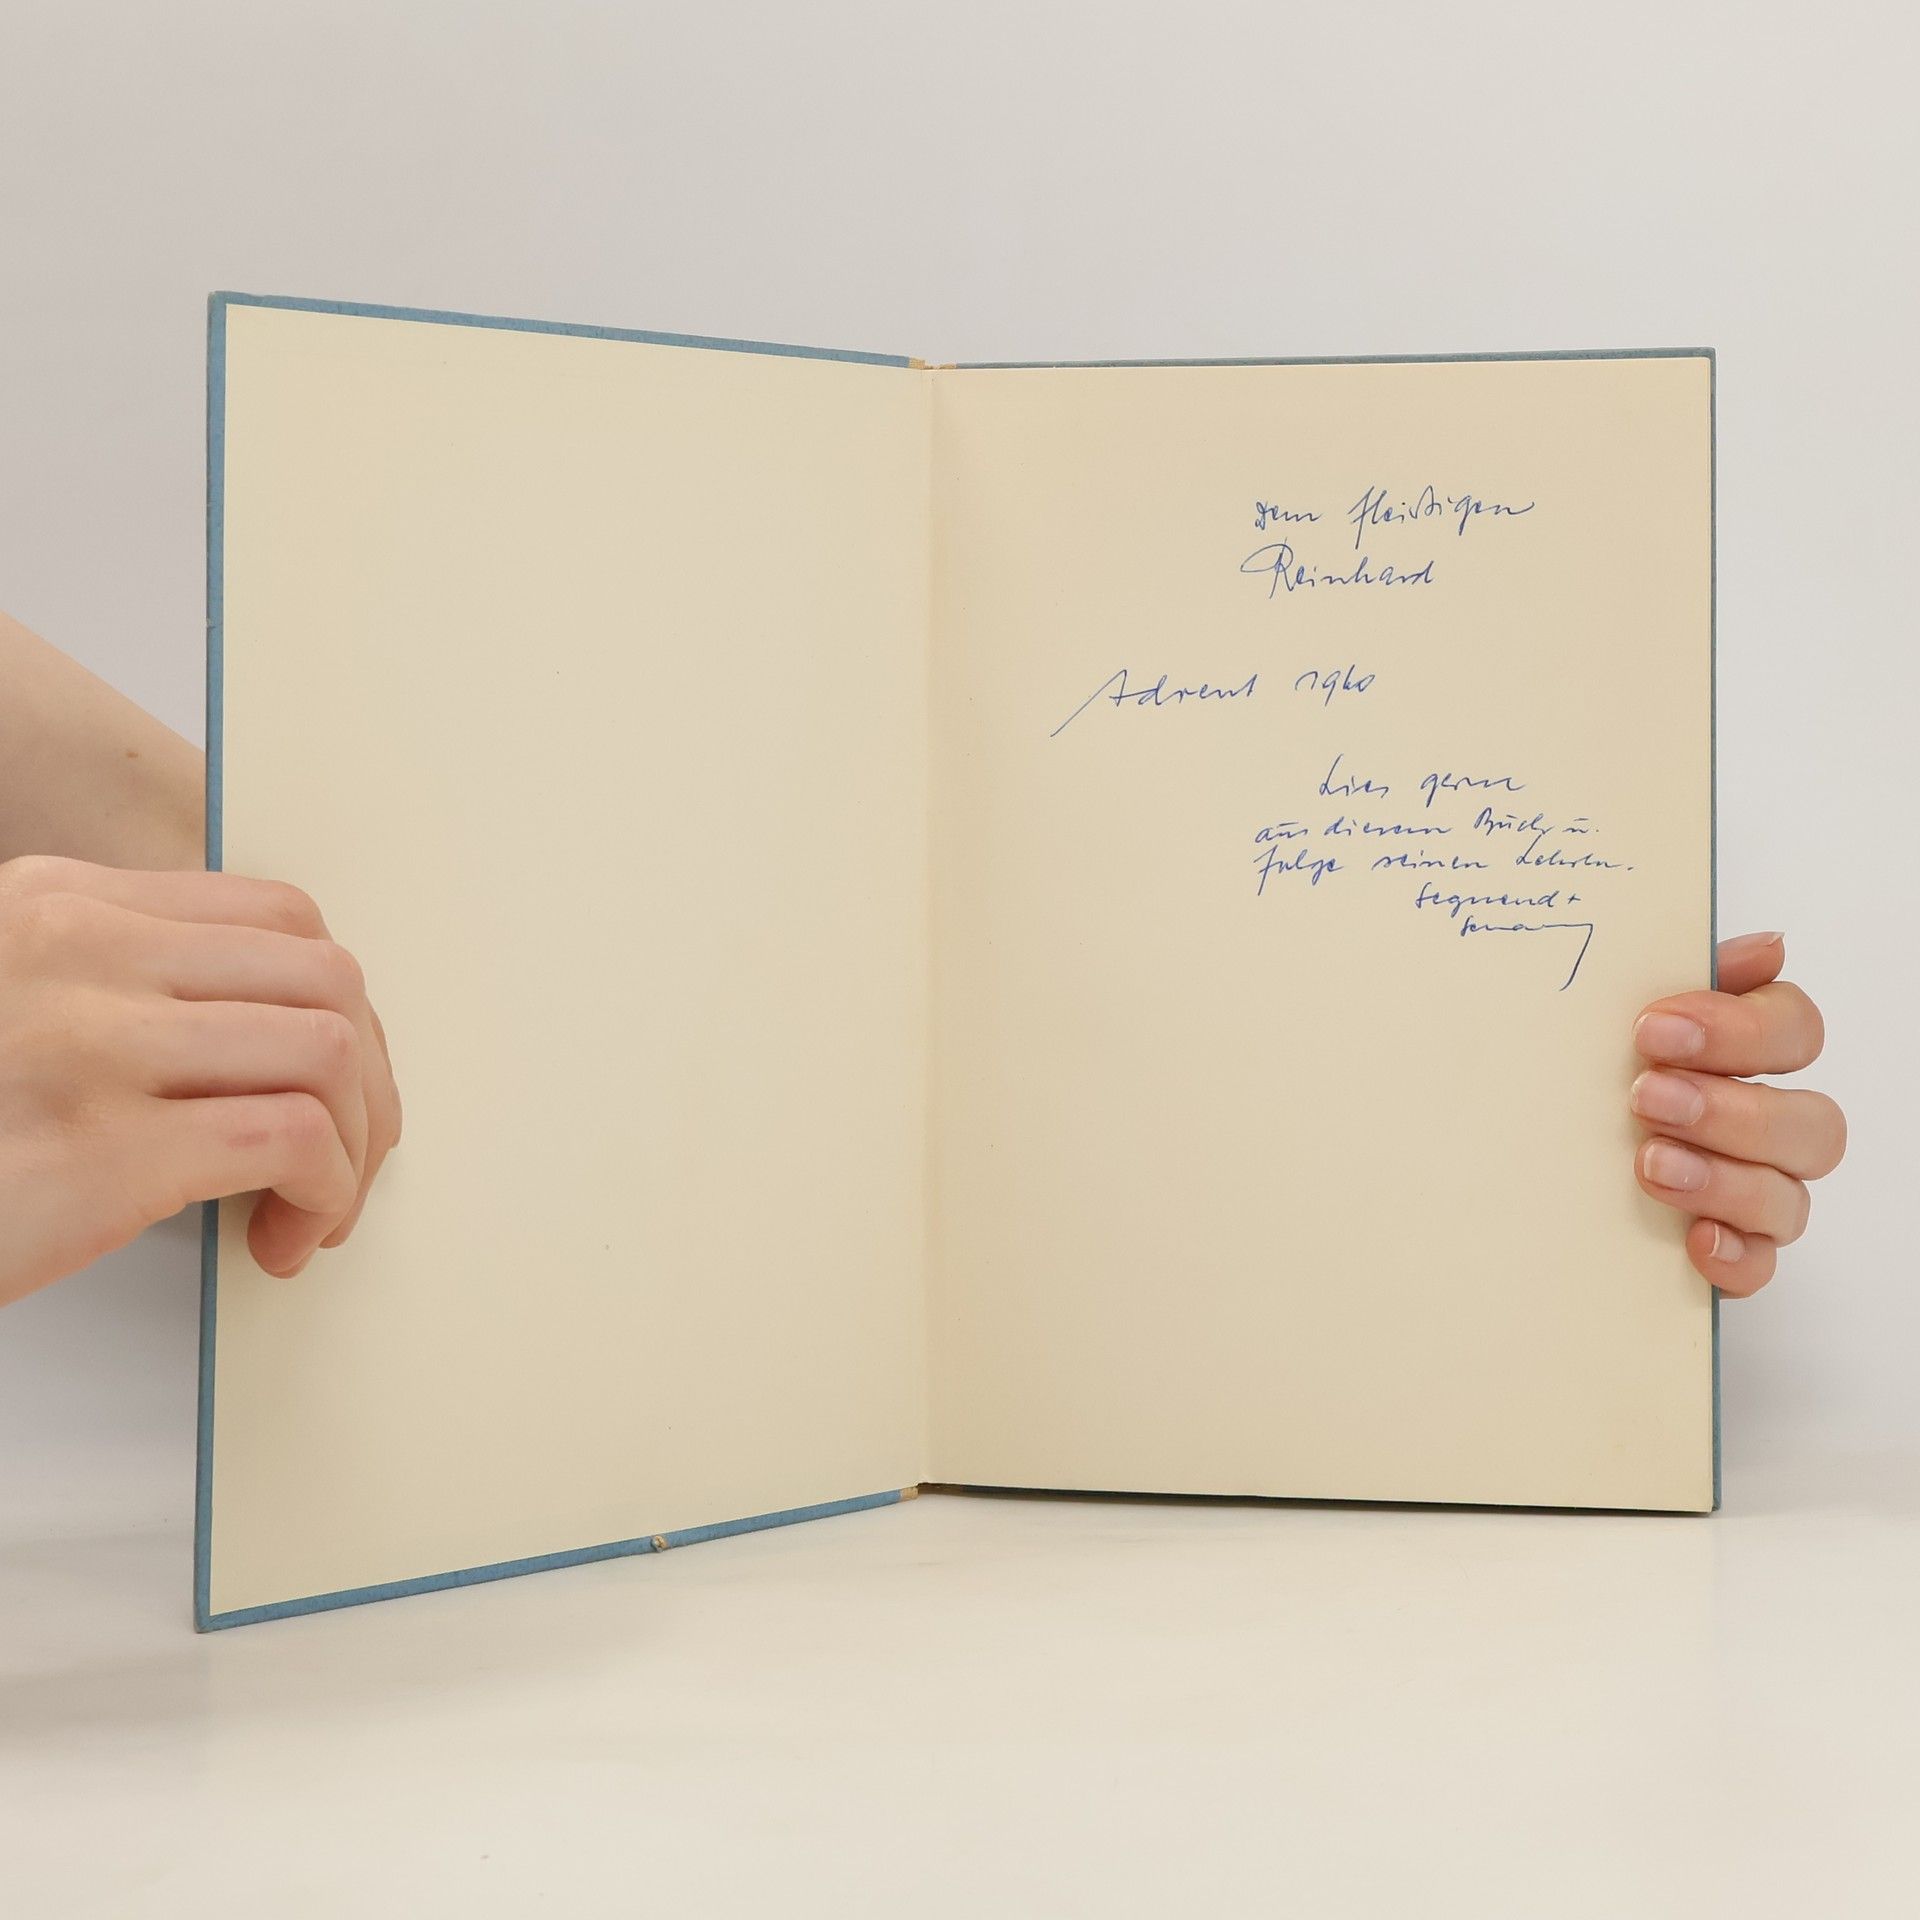 Dem fleißigen
Reinhard
Advent 1960
Lies gerne
aus diesem Buch u.
folge seinen Lehren.
Segnend +